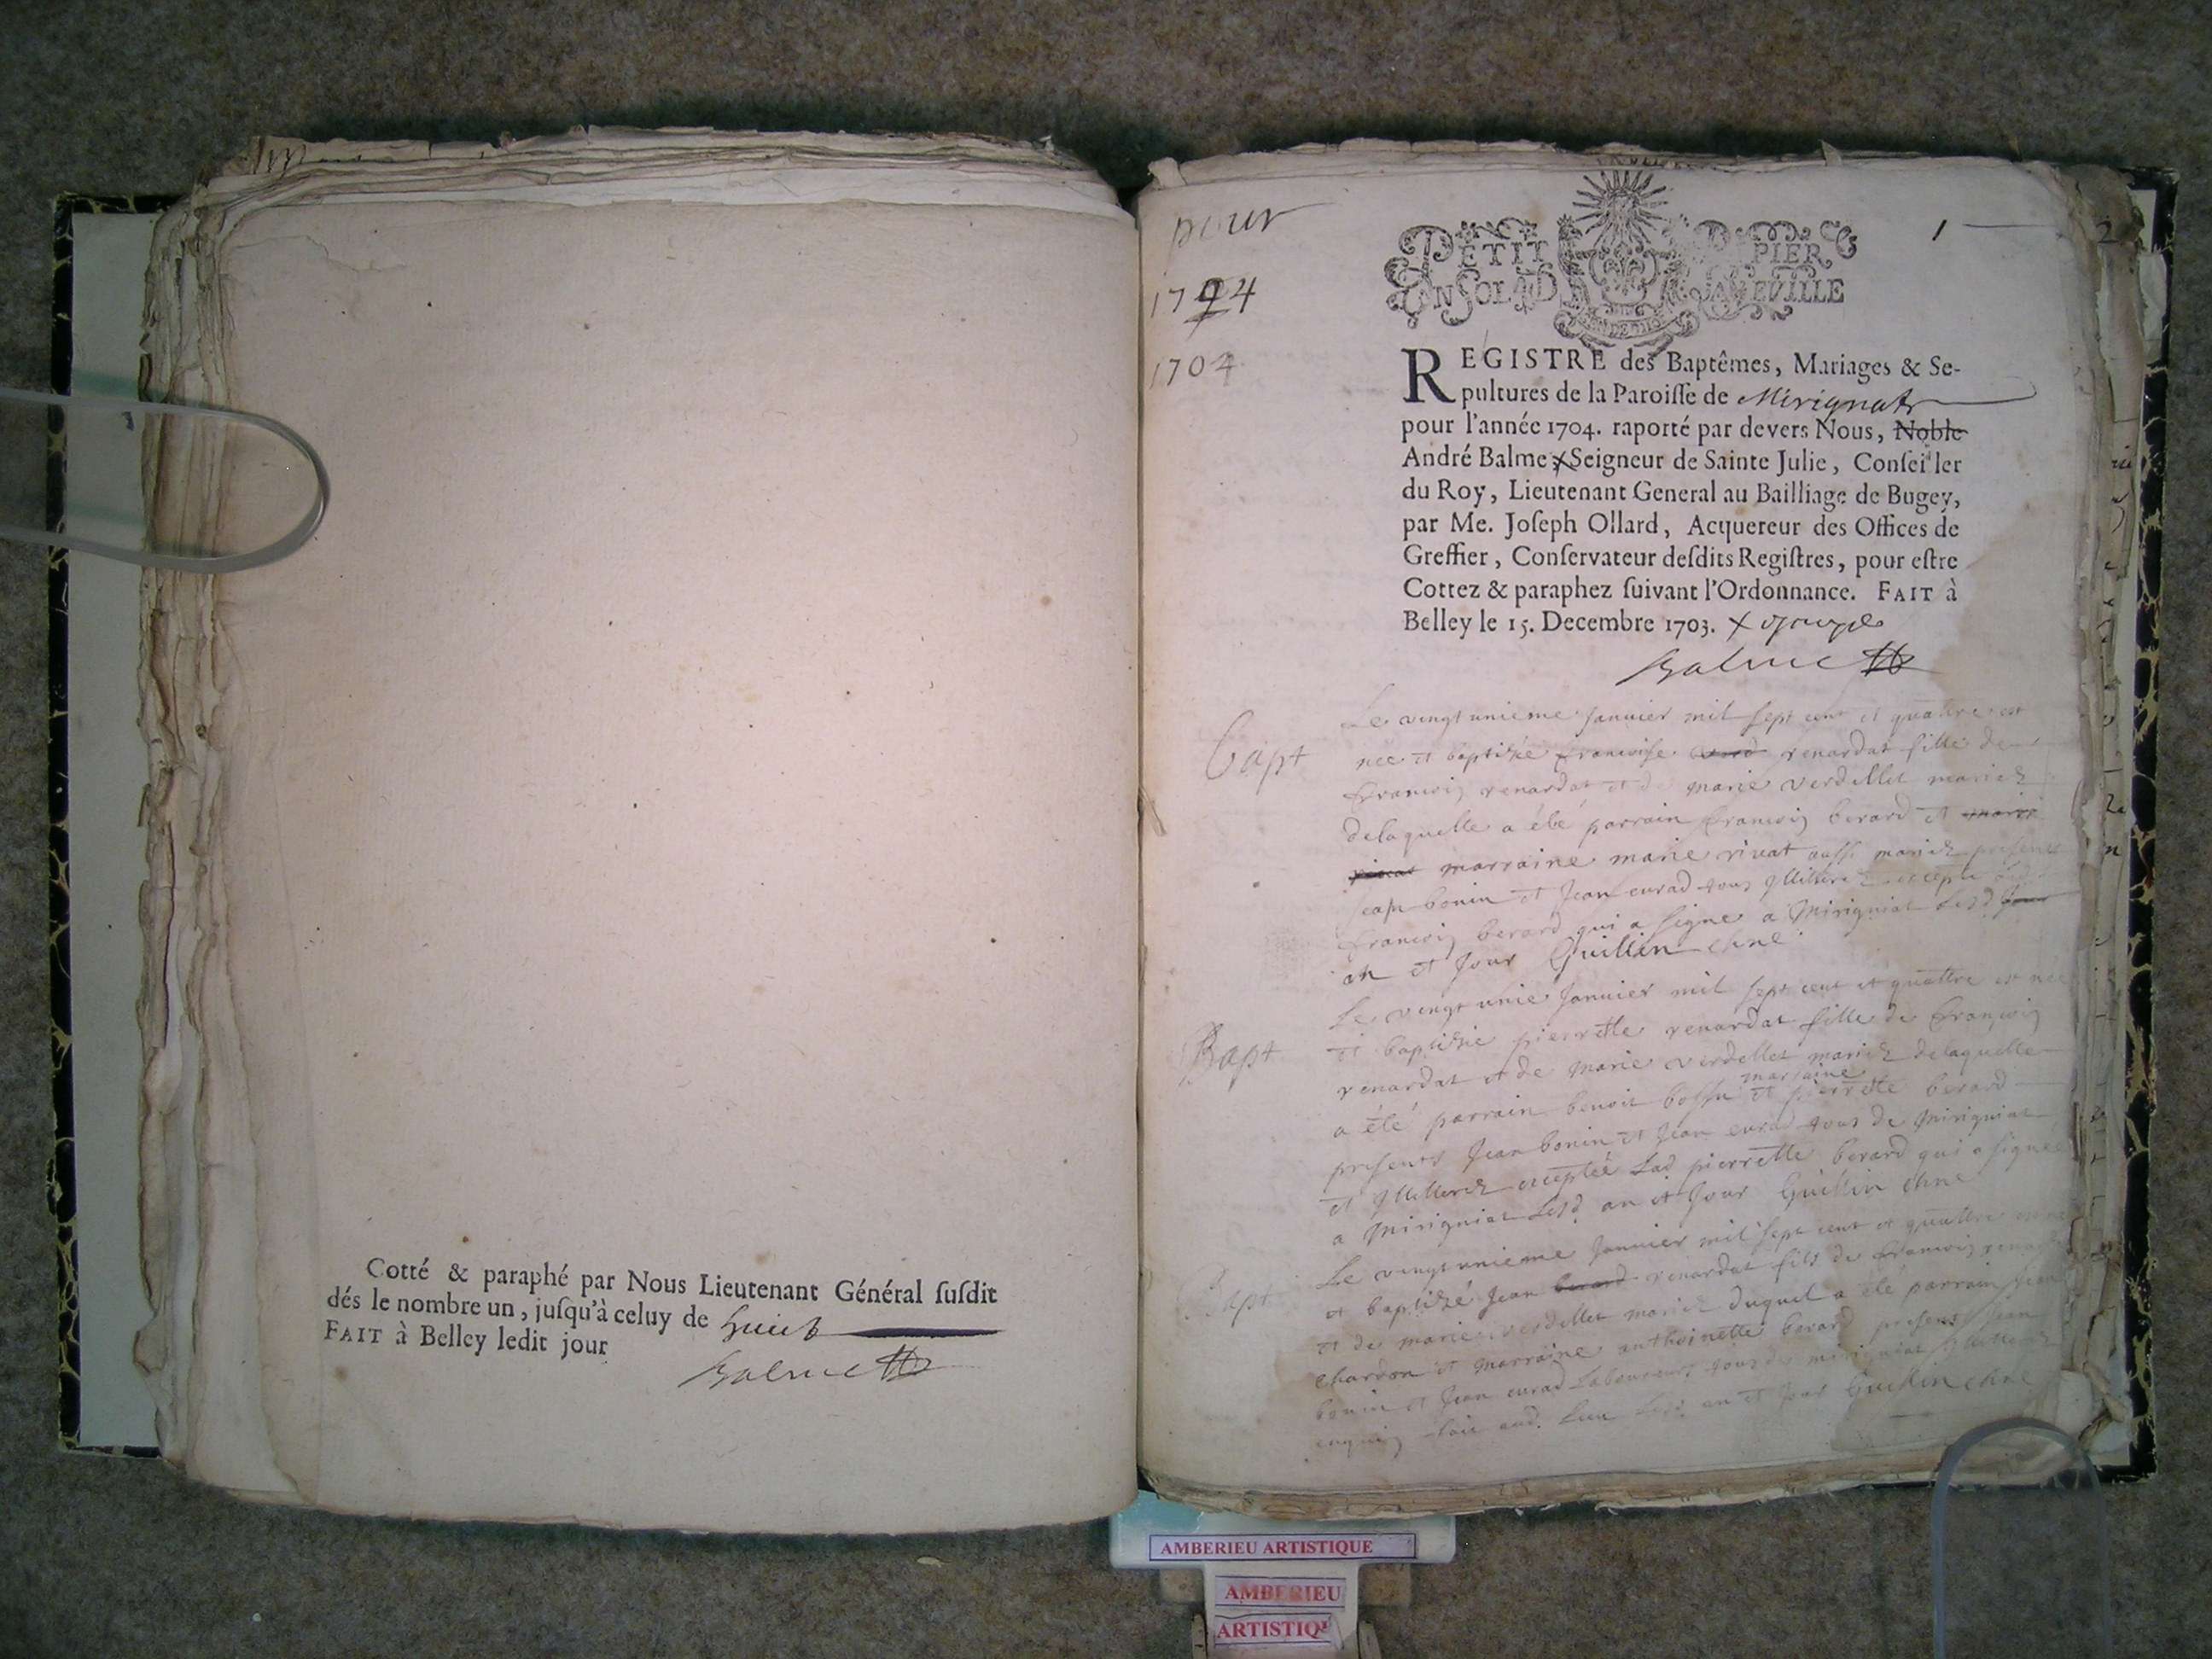 Cotté & paraphé par Nous Lieutenant Général susdit
dés le nombre un, jusqu'à celuy de huict
FAIT à Belley ledit jour
Balme
pour
1704
1704
1
2
PETIT PAPIER
UN SOL LA FEUILLE
REGISTRE des Baptêmes, Mariages & Se-
pultures de la Paroisse de Mirignat
pour l'année 1704. raporté par devers Nous, Noble
André Balme x Seigneur de Sainte Julie, Conseiller
du Roy, Lieutenant General au Bailliage de Bugey,
par Me. Joseph Ollard, Acquereur des Offices de
Greffier, Conservateur desdits Registres, pour estre
Cottez & paraphez suivant l'Ordonnance. FAIT à
Belley le 15. Decembre 1703. x
Balme
Bapt
Le vingt unieme Janvier mil sept cent et quattre est
nee et baptizée francoise renardat fille de
francois renardat et de marie verdellet mariez
delaquelle a été parrain francois berard et
marraine marie rivat aussi mariez presents
jean bonin et Jean curad tous Illiterez excepte
francois berard qui a signe a Mirigniat Lesd
an et Jour Guillin
Bapt
Le vingt unie Janvier mil sept cent et quattre est nee
et baptizie pierrette renardat fille de francois
renardat et de Marie verdellet mariez delaquelle
a été parrain benoit bossu et marraine pierrette berard
presents Jean bonin et Jean curad tous de Mirigniat
et Illiterez exceptée Lad pierrette berard qui a signée
a Mirigniat Lesd an et Jour Guillin
Bapt
Le vingt unieme Janvier mil sept cent et quattre est ne
et baptizé Jean berard renardat fils de francois renardat
et de marie verdellet mariez duquel a été parrain
chardon et marraine anthoinette berard presents Jean
bonin et Jean curad Laboureurs tous de mirigniat Illiterez
enquis aud. Lieu Lesd an et Jour Guillin
AMBERIEU ARTISTIQUE
AMBERIEU
ARTISTIQU